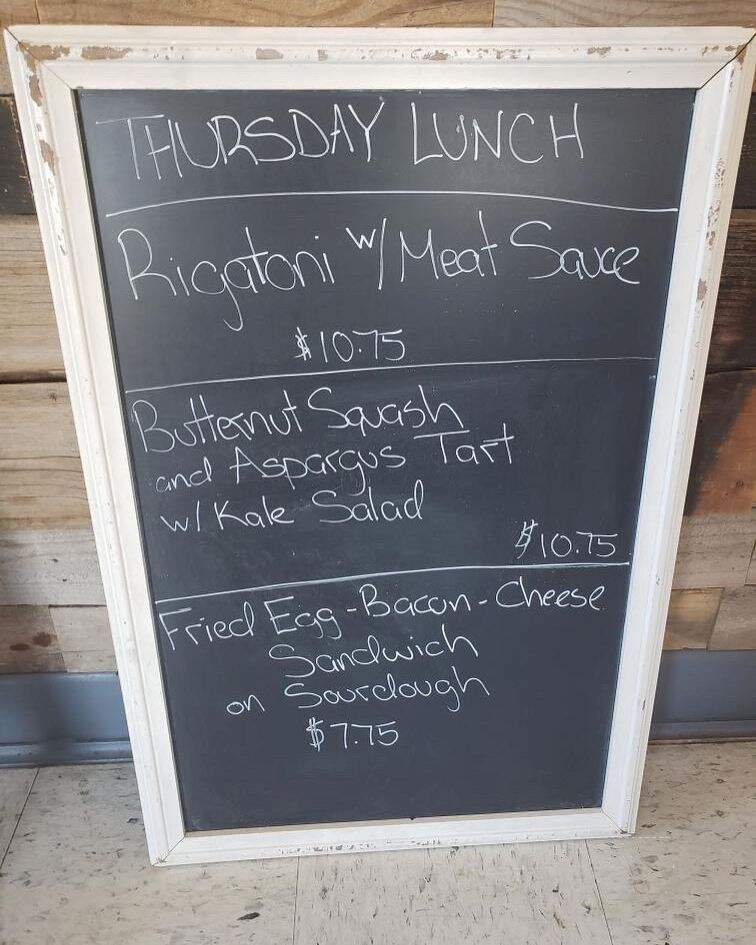 THURSDAY LUNCH
Rigatoni w/ Meat Sauce
$10.75
Butternut Squash
and Aspargus Tart
w/ Kale Salad
$10.75
Fried Egg-Bacon-Cheese
Sandwich
on Sourdough
$7.75